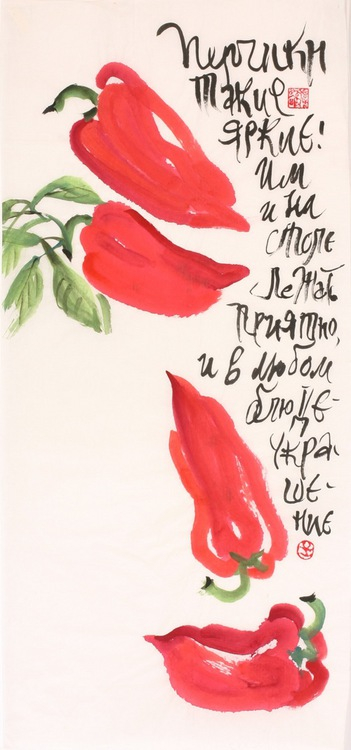 Перчики
такие
яркие!
Им
и на
столе
лежать
приятно,
и в любом
блюде-
укра-
ше-
ние